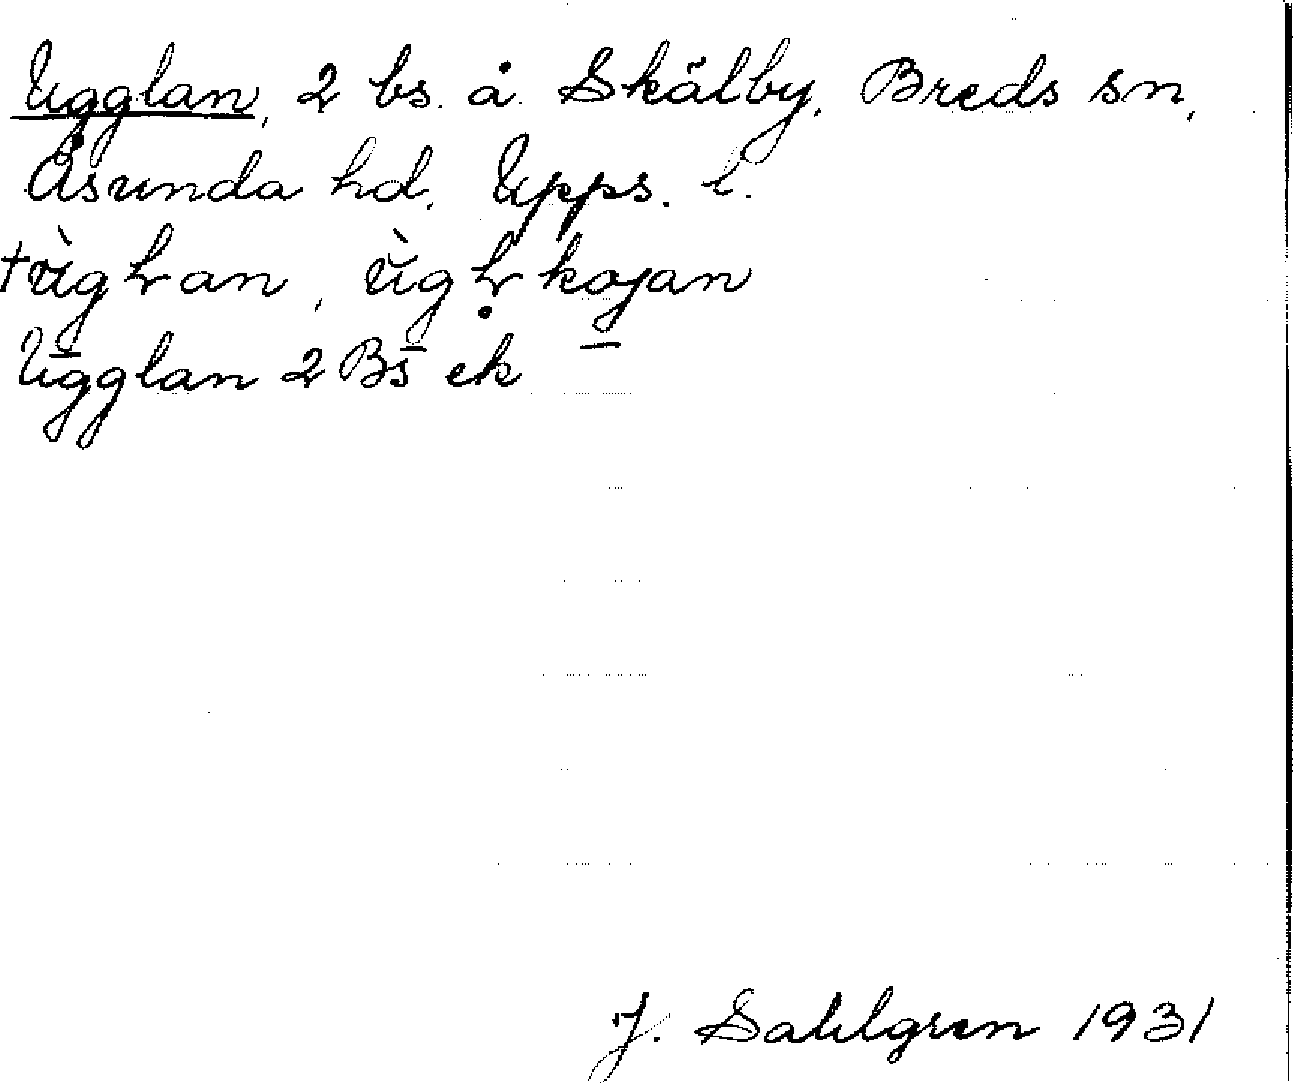 Ugglan, 2 bs. å Skälby, Breds sn,
Åsunda hd, Upps. l.
†ùgɽan, ùgɽ̥kojan
Ugglan 2 Bs ek
J. Sahlgren 1931